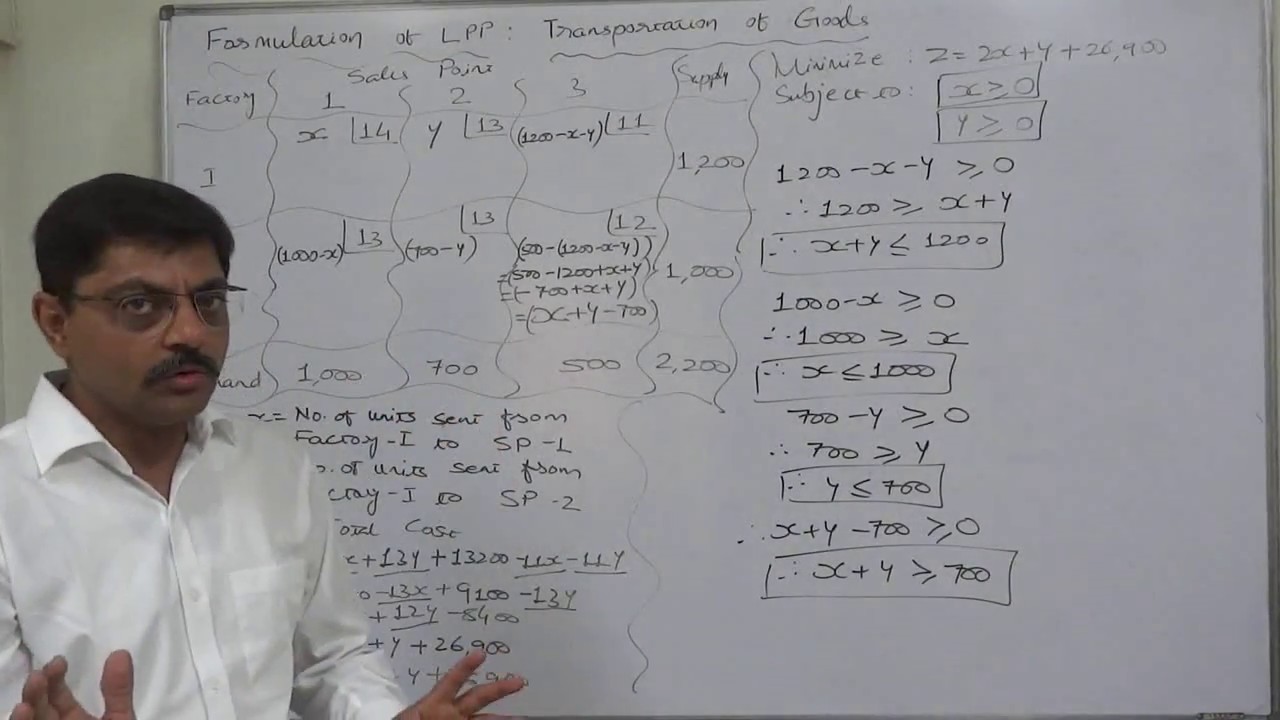 Formulation of LPP: Transportation of Goods
Sales Point
Factory 1 2 3 Supply
x 14 y 13 (1200-x-y) 11
I 1,200
(1000-x) 13 (700-y) 13 (500-(1200-x-y)) 12
=(500-1200+x+y) 1,000
=(-700+x+y)
=(x+y-700)
and 1,000 700 500 2,200
x= No. of units sent from
Factory-I to SP-1
. of units sent from
ctory-I to SP-2
Cost
x+13y+13200-11x-11y
0-13x+9100-13y
+12y-8400
+y+26,900
Minimize : Z=2x+y+26,900
Subject to: x≥0
y≥0
1200-x-y ≥0
∴ 1200 ≥ x+y
∴ x+y ≤ 1200
1000-x ≥ 0
∴ 1000 ≥ x
∴ x ≤ 1000
700-y ≥ 0
∴ 700 ≥ y
∴ y ≤ 700
∴ x+y-700 ≥ 0
∴ x+y ≥ 700